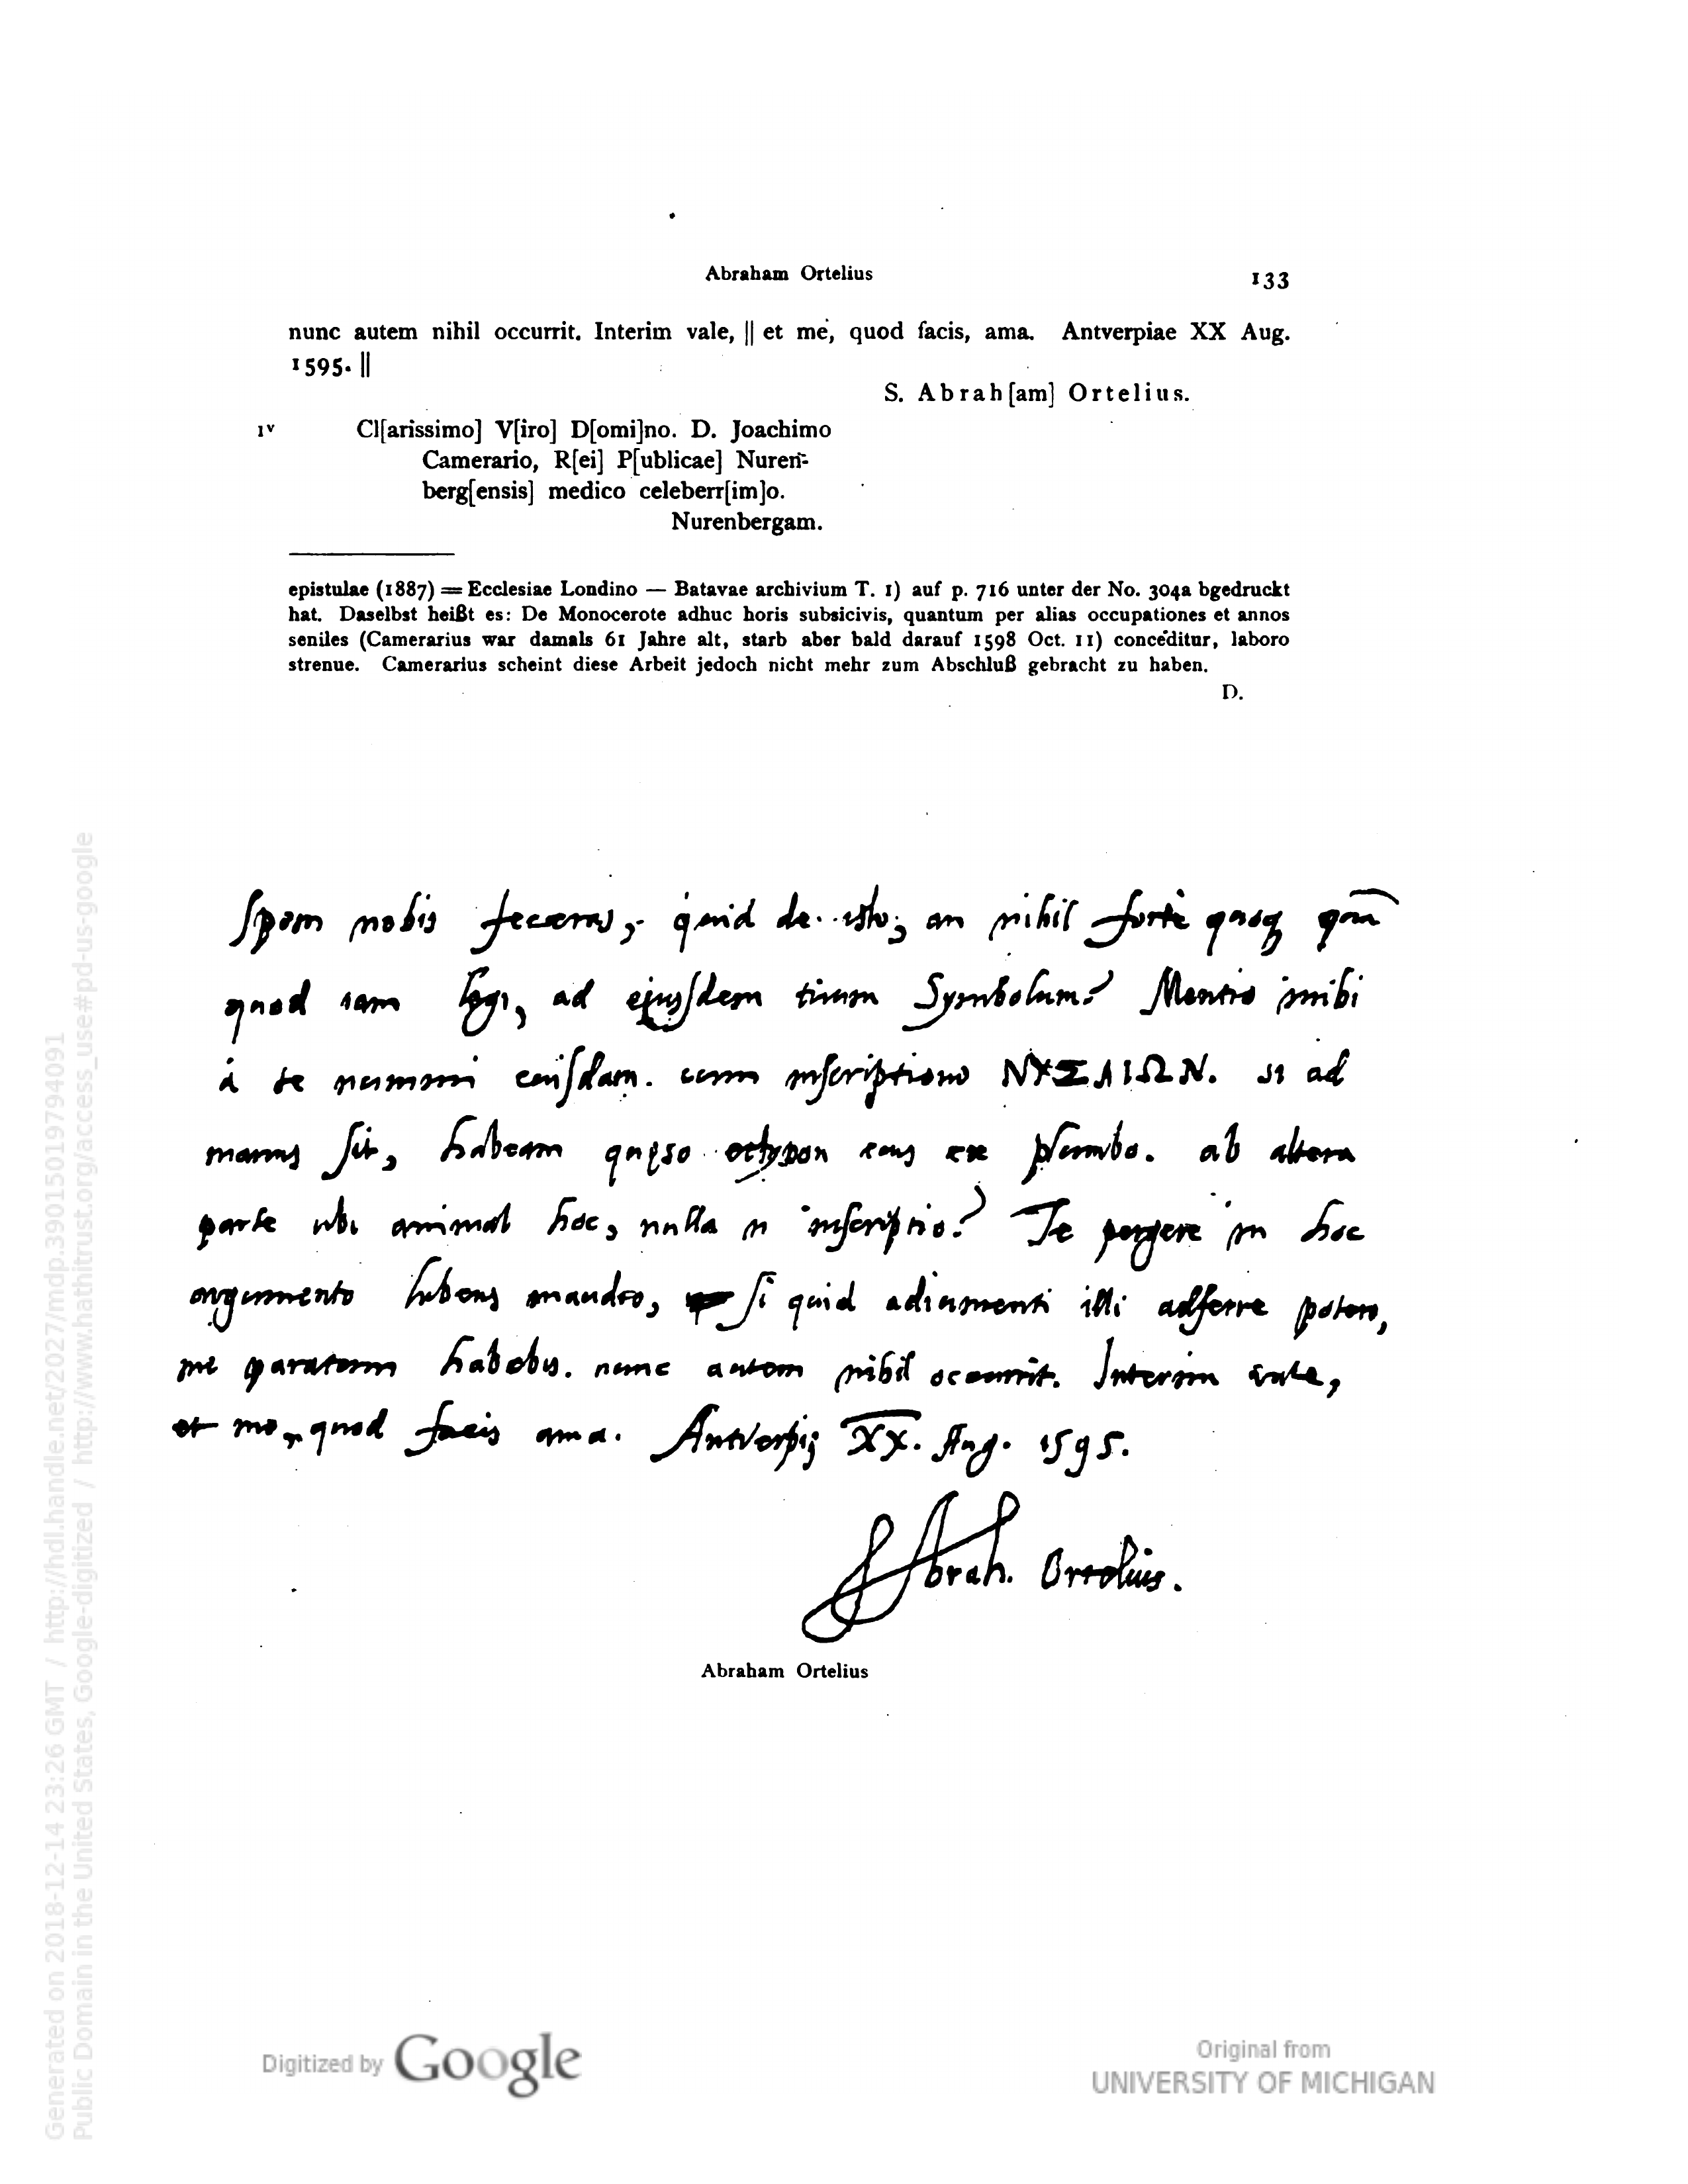 Abraham Ortelius 133
nunc autem nihil occurrit. Interim vale, || et me, quod facis, ama. Antverpiae XX Aug.
1595. ||
S. Abrah[am] Ortelius.
1v Cl[arissimo] V[iro] D[omi]no. D. Joachimo
Camerario, R[ei] P[ublicae] Nuren-
berg[ensis] medico celeberr[im]o.
Nurenbergam.
epistulae (1887) = Ecclesiae Londino — Batavae archivium T. 1) auf p. 716 unter der No. 304a bgedruckt
hat. Daselbst heißt es: De Monocerote adhuc horis subsicivis, quantum per alias occupationes et annos
seniles (Camerarius war damals 61 Jahre alt, starb aber bald darauf 1598 Oct. 11) conceditur, laboro
strenue. Camerarius scheint diese Arbeit jedoch nicht mehr zum Abschluß gebracht zu haben.
D.
Spem nobis feceras, quid de isto; an nihil fortè
quod iam legi, ad ejusdem tuum Symbolum? Mentio mihi
à te nummi cuiusdam. cum inscriptione ΝΥΣΑΙΩΝ. si ad
manus sit, habeam quęso ectypon eius ex plumbo. ab altera
parte ubi animal hoc, nulla n inscriptio? Te pergere in hoc
argumento lubens maudio, si quid adiumenti illi adferre potero,
me paratum habebis. nunc autem nihil occurrit. Interim vale,
et me, quod facis ama. Antverpię XX. Aug. 1595.
S Abrah. Ortelius.
Abraham Ortelius
Generated on 2018-12-14 23:26 GMT / http://hdl.handle.net/2027/mdp.39015019794091
Public Domain in the United States, Google-digitized / http://www.hathitrust.org/access_use#pd-us-google
Digitized by Google
Original from
UNIVERSITY OF MICHIGAN